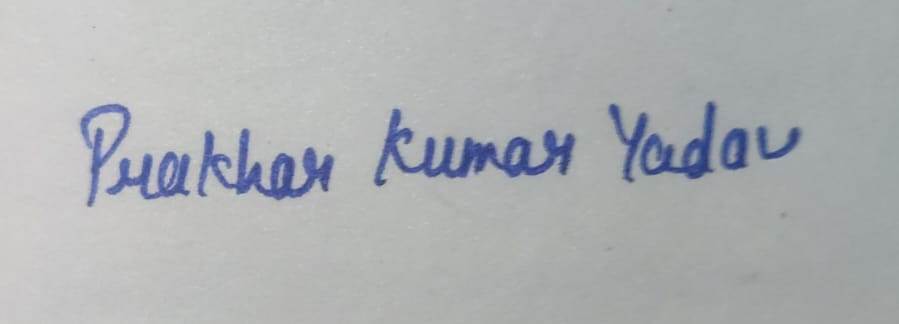 Prakhar Kumar Yadav